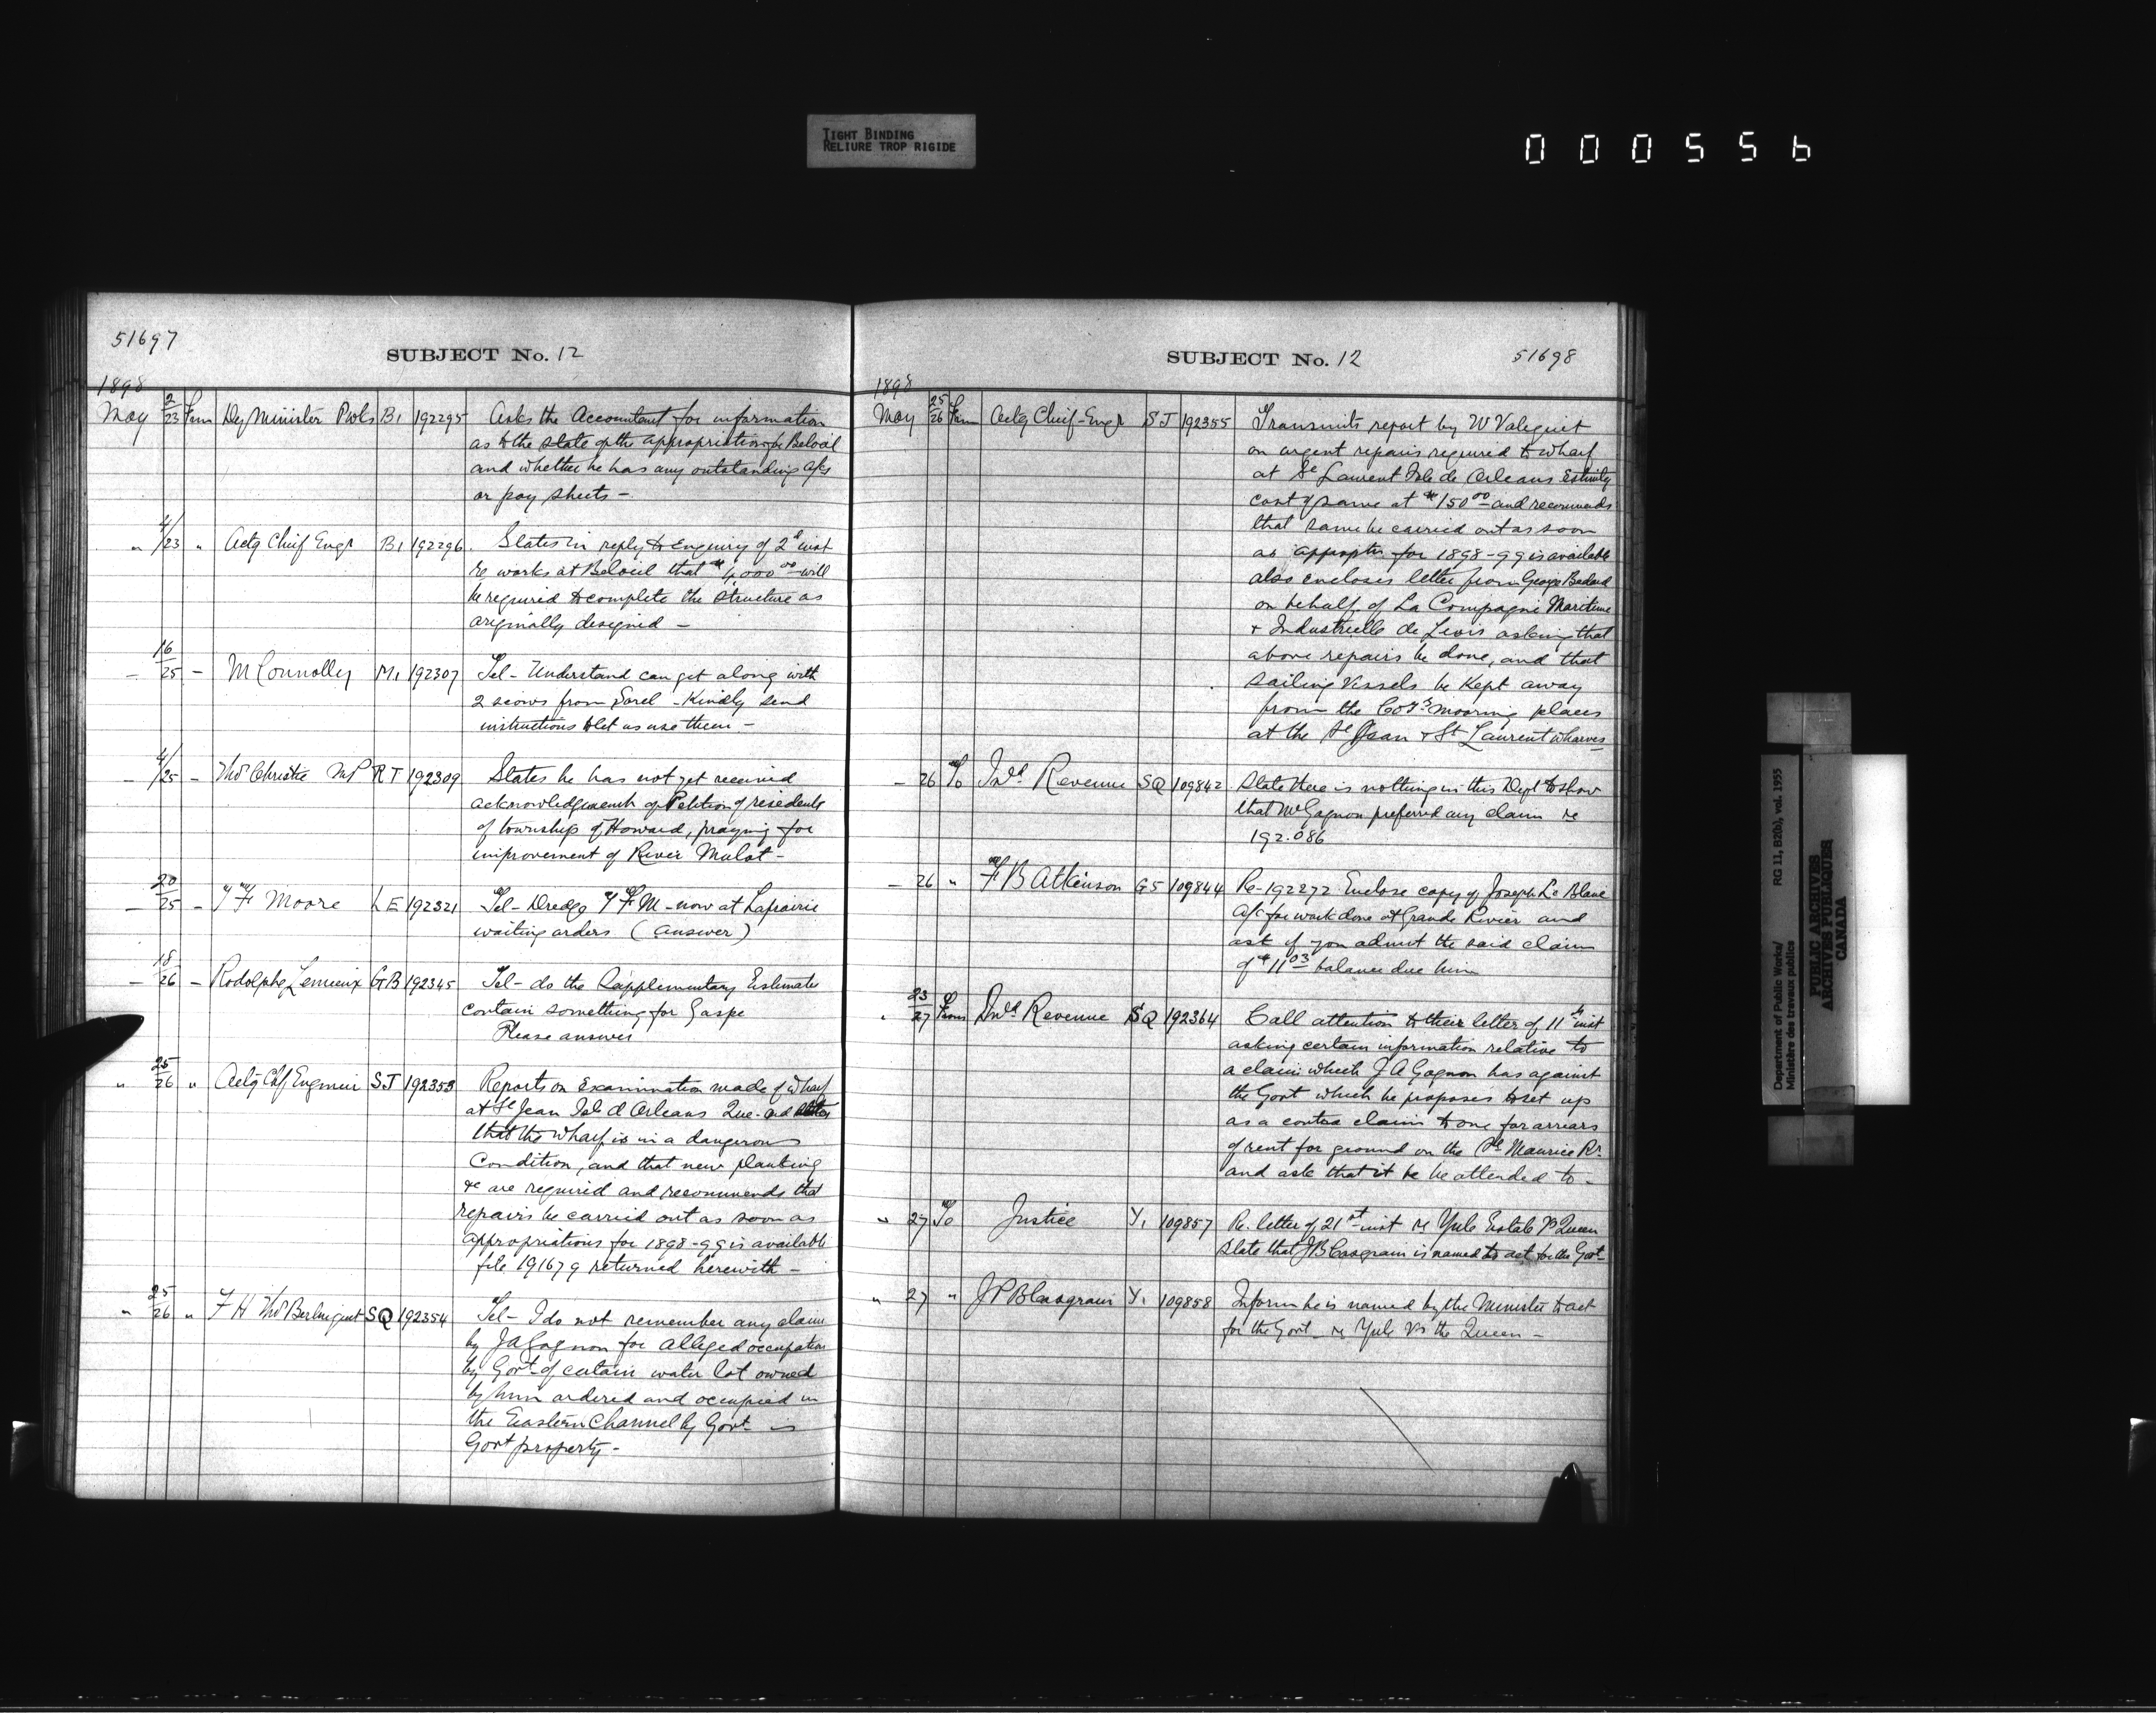 TIGHT BINDING
RELIURE TROP RIGIDE
000556
51697
SUBJECT No. 12
1898
May 2/23 From Dep Minister P Wks B1 192295 Asks the Accountant for information
as to the state of the appropriation for Beloeil
and whether he has any outstanding a/cs
or pay sheets -
" 4/23 " Actg Chief Engr B1 192296 States in reply to Enquiry of 2d inst
re works at Beloeil that $4,000 00 will
be required to complete the structure as
originally designed -
- 16/25 - M Connolly M1 192307 Tel - Understand can get along with
2 scows from Sorel - Kindly send
instructions to let us use them -
- 4/25 - Thos Christie MP RT 192309 States he has not yet received
acknowledgement of Petition of residents
of township of Howard, praying for
improvement of River Mulot -
- 20/25 - Moore LE 192321 Tel - Dredge now at Laprairie
waiting orders (answer)
- 18/26 - Rodolphe Lemieux GB 192345 Tel - do the Supplementary Estimates
contain something for Gaspe
Please answer
" 25/26 " Actg Chf Engineer SJ 192353 Reports on Examination made of wharf
at St Jean Isle d Orleans Que - and states
that the wharf is in a dangerous
Condition, and that new planking
&c are required and recommends that
repairs be carried out as soon as
appropriations for 1898-99 is available
file 191679 returned herewith -
" 25/26 " F H SQ 192354 Tel - I do not remember any claim
by J A Gagnon for alleged occupation
by Govt of certain water lot owned
by him ordered and occupied in
the Eastern Channel by Govt as
Govt property -
SUBJECT No. 12
51698
1898
May 25/26 From Actg Chief Engr SJ 192355 Transmits report by W Valiquiet
on urgent repairs required to wharf
at St Laurent Isle de Orleans Estimating
cost of same at $150 00 and recommends
that same be carried out as soon
as appropts for 1898-99 is available
also encloses letter from George Bedard
on behalf of La Compagnie Maritime
+ Industrielle de Levis asking that
above repairs be done, and that
sailing vessels be kept away
from the Coy's mooring places
at the St Jean + St Laurent wharves
- 26 To Inld Revenue SQ 109842 State there is nothing in this Dept to show
that Mr Gagnon preferred any claim re
192.086
- 26 " F B Atkinson G5 109844 Re - 192272 Enclose copy of Joseph Le Blanc
a/c for work done at Grande River and
ask if you admit the said claim
of $11 03 balance due him
" 23/27 From Inld Revenue SQ 192364 Call attention to their letter of 11th inst
asking certain information relative to
a claim which J A Gagnon has against
the Govt which he proposes to set up
as a contra claim to one for arriars
of rent for ground on the St Maurice Rr
and ask that it be be attended to -
" 27 To Justice Y1 109857 Re. letter of 21st inst re Yule Estate Vs Queen
State that J B Casgrain is named to act for the Govt
" 27 " J P B Casgrain Y1 109858 Inform he is named by the Minister to act
for the Govt - re Yule Vs the Queen -
Department of Public Works/
Ministère des travaux publics
RG 11, B2(b), vol. 1955
PUBLIC ARCHIVES
ARCHIVES PUBLIQUES
CANADA